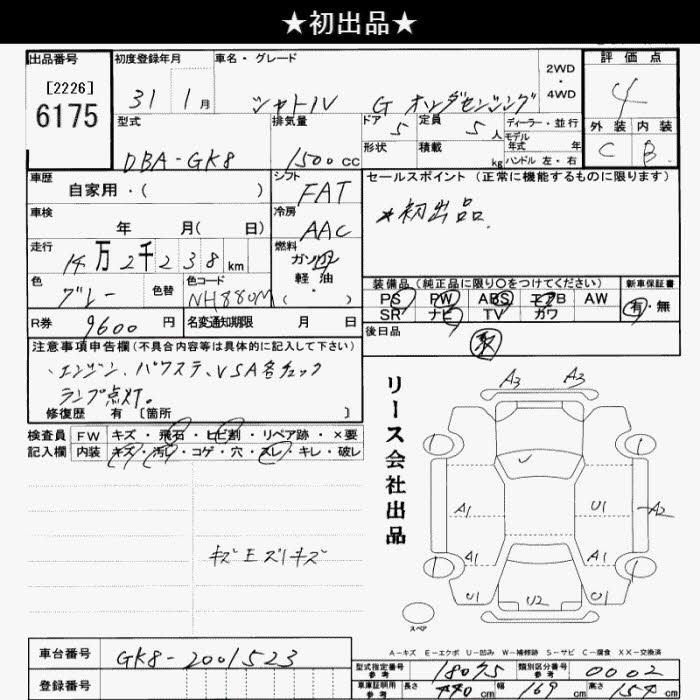 ★初出品★
出品番号
[2226]
6175
初度登録年月
31 1月
車名・グレード
シャトル G ホンダセンシング
2WD
・
4WD
評価点
4
外装 内装
C B
型式
DBA-GK8
排気量
1500 cc
ドア 5
定員 5 人
形状
積載 kg
ディーラー・並行
モデル
年式 年
ハンドル 左・右
車歴
自家用・( )
シフト
FAT
セールスポイント(正常に機能するものに限ります)
★初出品
車検
年 月( 日)
冷房
AAC
走行
14万2千238km
燃料
ガソリン
軽油
( ・ )
色
グレー
色替
色コード
NH880M
装備品(純正品に限り○をつけてください)
PS PW ABS エアB AW
SR ナビ TV カワ
新車保証書
有・無
R券
9600 円
名変通知期限 月 日
後日品
取
注意事項申告欄(不具合内容等は具体的に記入して下さい)
・エンジン、パワステ、VSA各チェック
ランプ点灯。
修復歴 有〔箇所 〕
検査員
記入欄
FW キズ・飛石・ヒビ割・リペア跡・×要
内装 キズ・汚レ・コゲ・穴・スレ・キレ・破レ
リース会社出品
A3 A3
A1 U1 A2
A1 A1
U1 U2 U1
スペア
A-キズ E-エクボ U-凹み W-補修跡 S-サビ C-腐食 XX-交換済
車台番号
GK8-2001523
登録番号
型式指定番号
参考
18075
類別区分番号
参考
0002
車庫証明用
参考
長さ 440 cm
幅 169 cm
高さ 154 cm